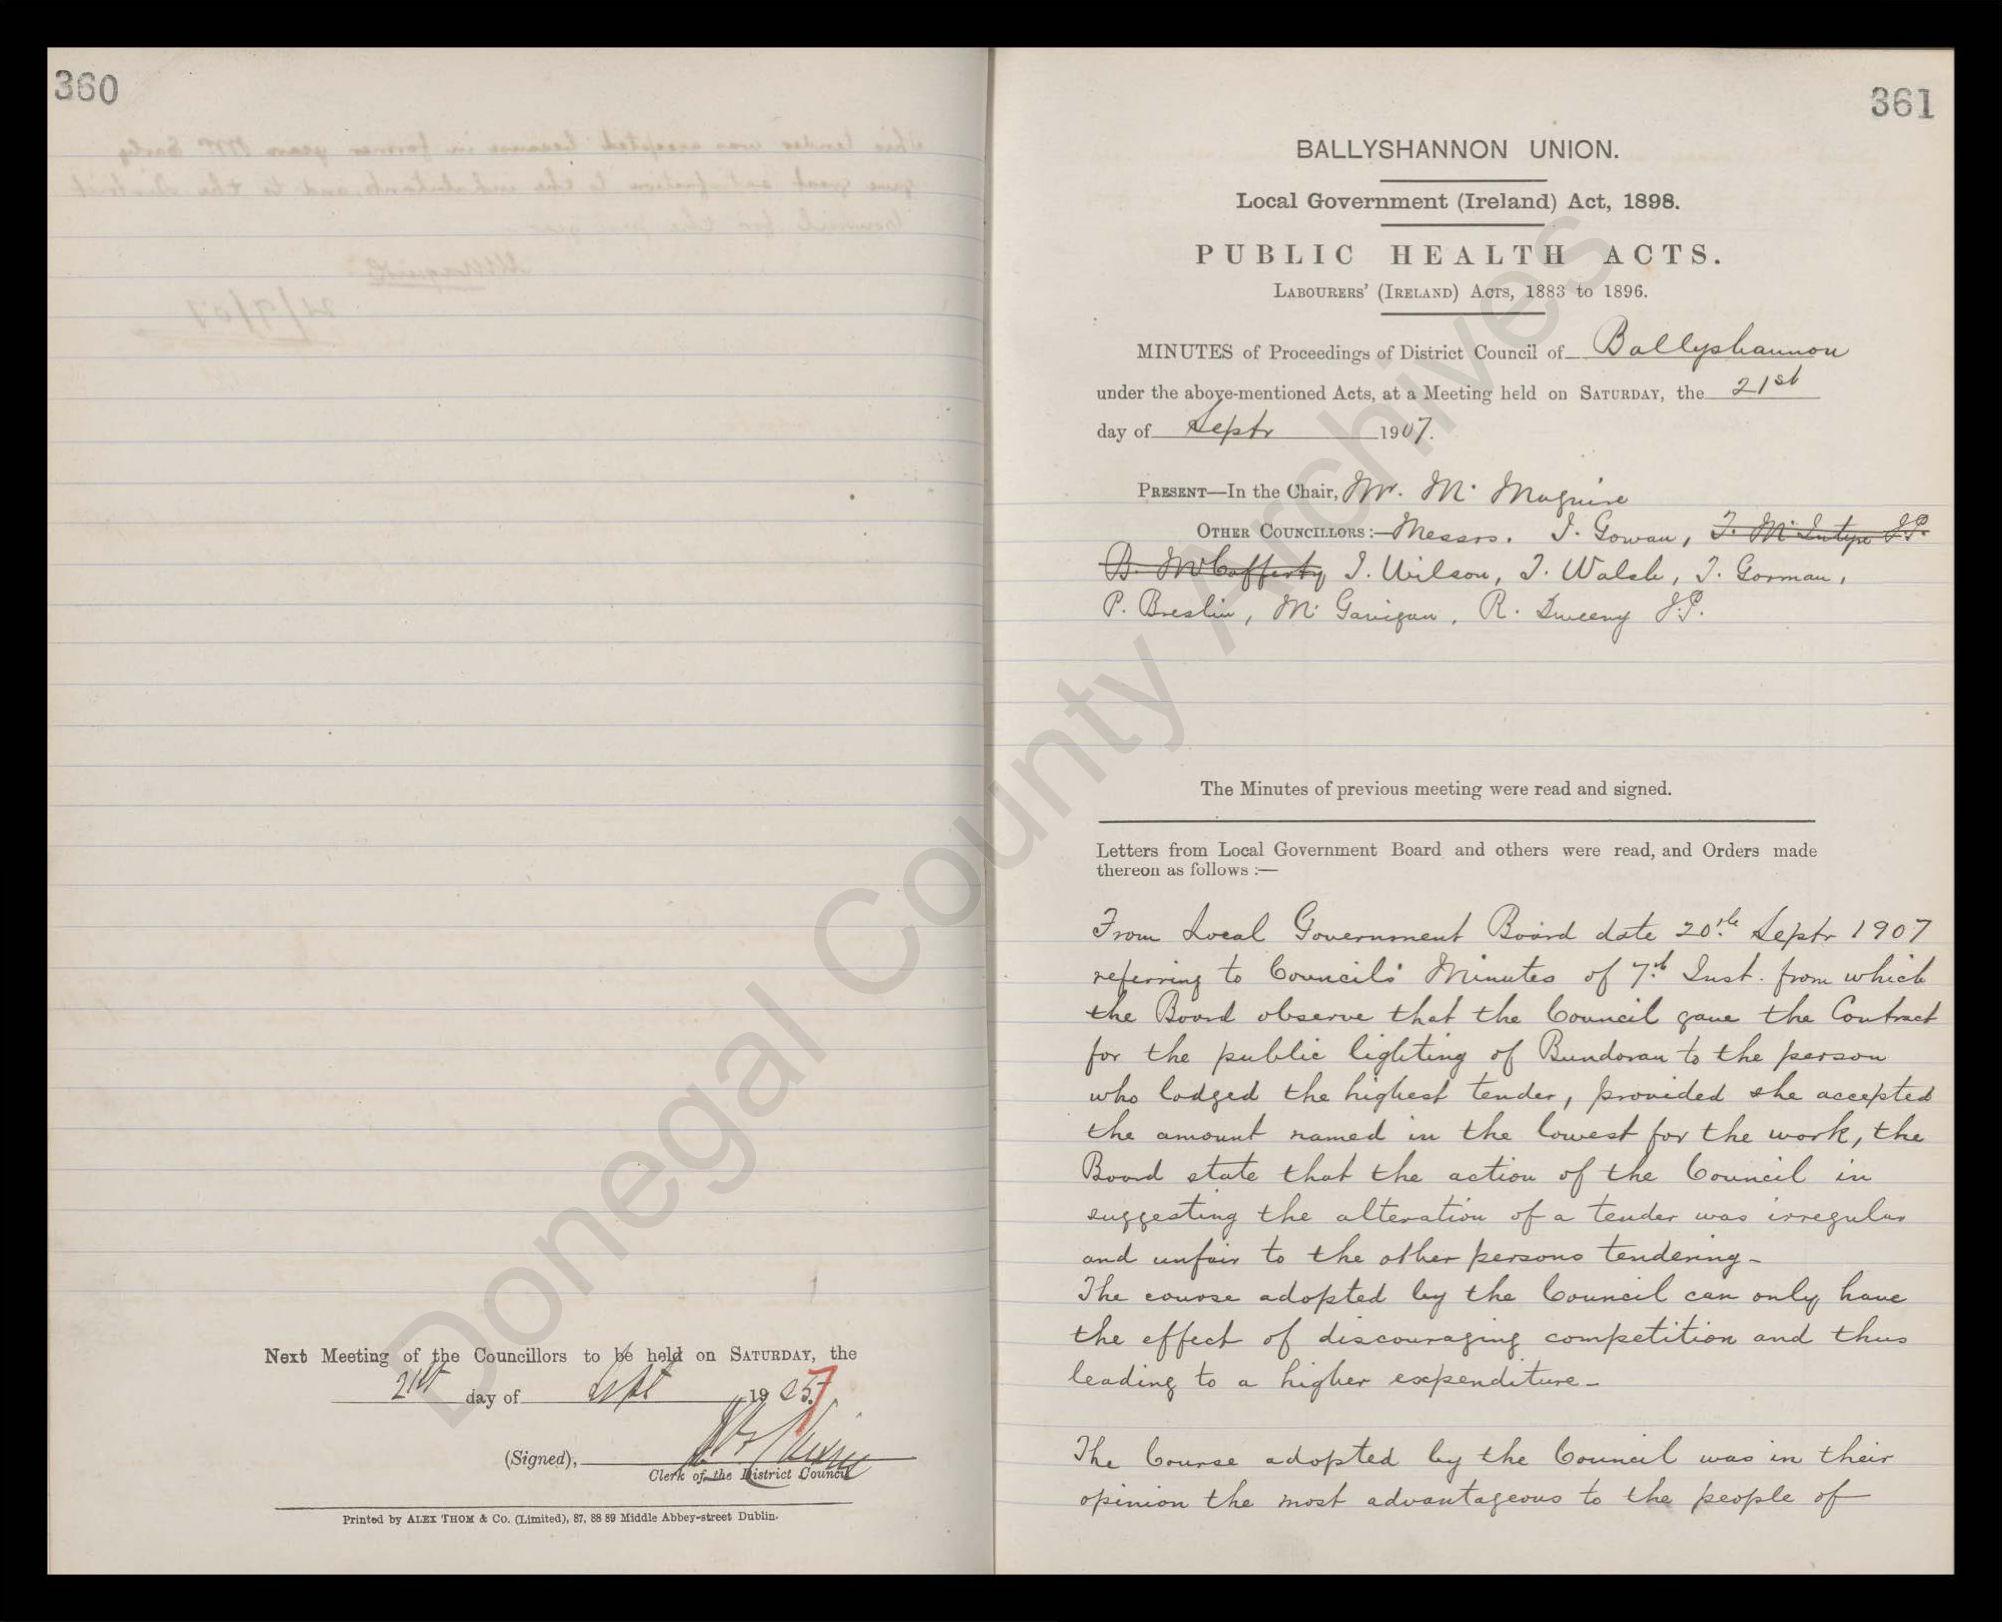 360
Next Meeting of the Councillors to be held on SATURDAY, the
21st day of Sept 1907
(Signed),
Clerk of the District Council
Printed by ALEX THOM & Co. (Limited), 87, 88 89 Middle Abbey-street Dublin.
361
BALLYSHANNON UNION.
Local Government (Ireland) Act, 1898.
PUBLIC HEALTH ACTS.
LABOURERS' (IRELAND) ACTS, 1883 to 1896.
MINUTES of Proceedings of District Council of Ballyshannon
under the above-mentioned Acts, at a Meeting held on SATURDAY, the 21st
day of Septr 1907.
PRESENT—In the Chair, Mr. M. Maguire
OTHER COUNCILLORS:—Messrs. J. Gowan, T. McIntyre J.P.
B. McCafferty J. Wilson, J. Walsh, T. Gorman,
P. Breslin, M. Gavigan, R. Sweeny J.P.
The Minutes of previous meeting were read and signed.
Letters from Local Government Board and others were read, and Orders made
thereon as follows :—
From Local Government Board date 20th Septr 1907
referring to Council's Minutes of 7th Inst. from which
the Board observe that the Council gave the Contract
for the public lighting of Bundoran to the person
who lodged the highest tender, provided she accepted
the amount named in the lowest for the work, the
Board state that the action of the Council in
suggesting the alteration of a tender was irregular
and unfair to the other persons tendering -
The course adopted by the Council can only have
the effect of discouraging competition and thus
leading to a higher expenditure -
The Course adopted by the Council was in their
opinion the most advantageous to the people of
Donegal County Archives